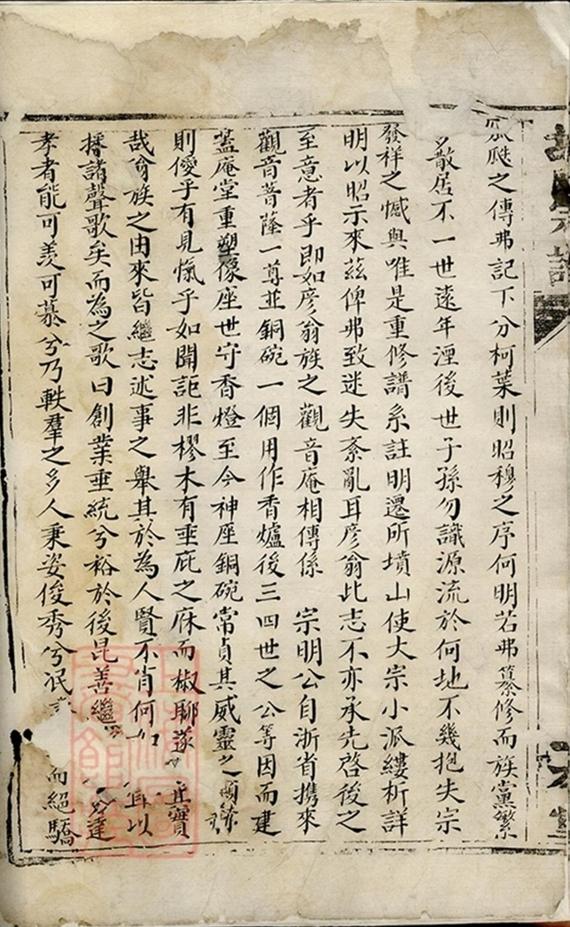 瓜瓞之傳弗記下分柯葉則昭穆之序何明若弗纂修而族黨繁
散居不一世遠年湮後世子孫勿識源流於何地不幾抱失宗
發祥之憾與唯是重修譜系註明遷所墳山使大宗小派縷析詳
明以昭示來茲俾弗致迷失紊亂耳彦翁此志不亦承先啓後之
至意者乎即如彦翁族之觀音庵相傳係 宗明公自浙省携來
觀音菩薩一尊並銅碗一個用作香爐後三四世之公等因而建
蓋庵堂重塑像座世守香燈至今神座銅碗常貞其威靈之
則僾乎有見愾乎如聞詎非樛木有垂庇之庥而椒聊遂 實
哉翁族之由來皆繼志述事之舉其於為人賢不肖何如 以
播諸聲歌矣而為之歌曰創業垂統兮裕於後昆善繼 達
孝者能可羨可慕兮乃軼羣之多人秉姿俊秀兮 而絕驕